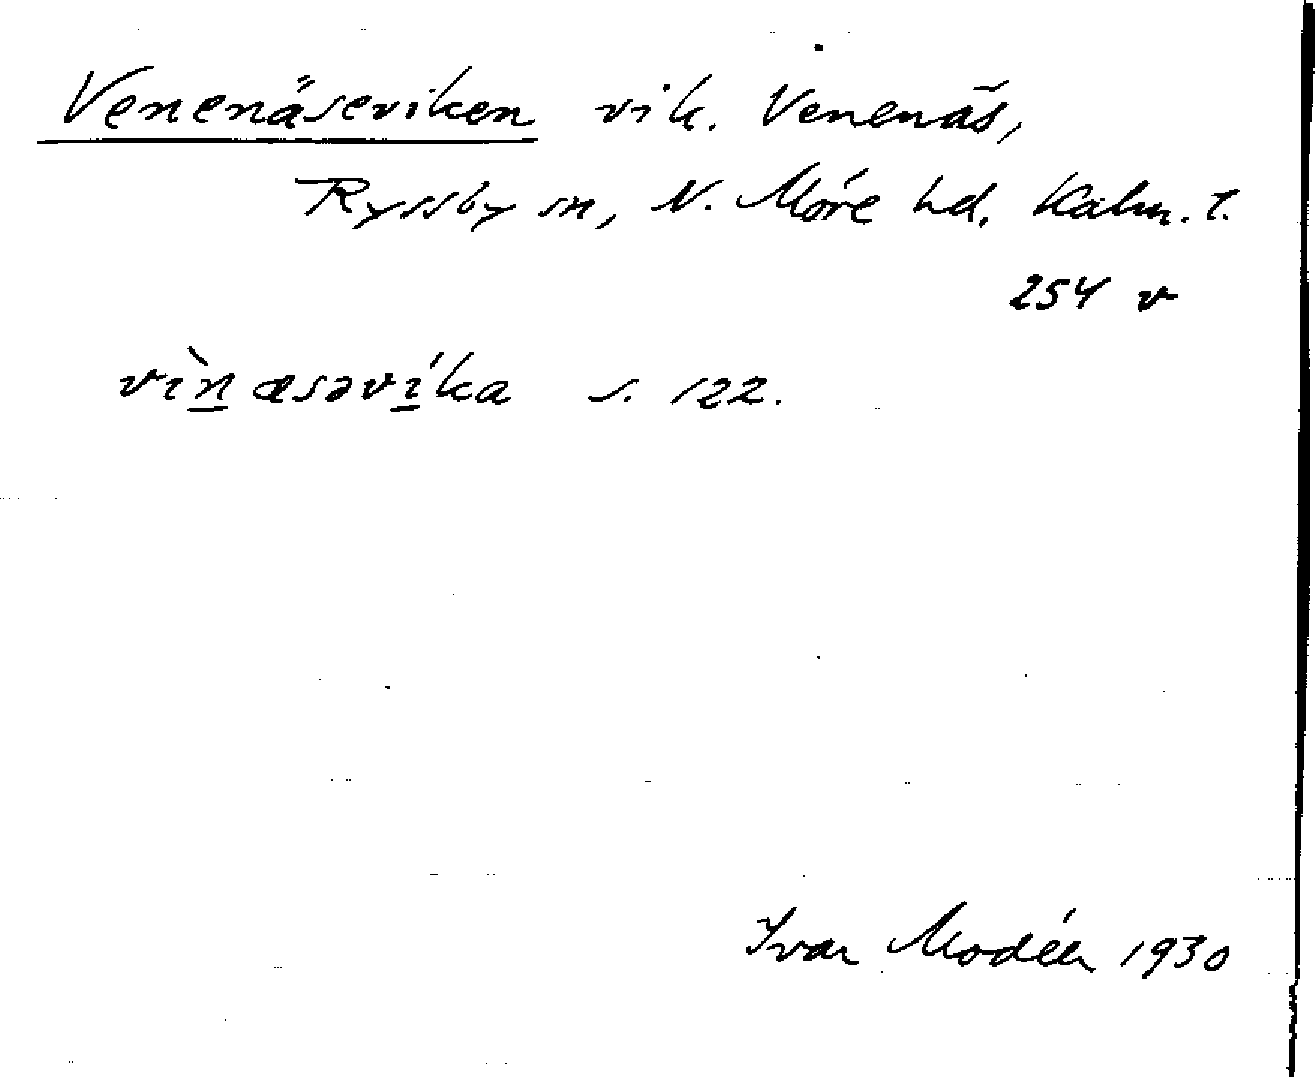 Venenäseviken vik. Venenäs,
Ryssby sn, N. Möre hd. Kalm. l.
254 v
vìn̲æsəví̲ka s. 122.
Ivar Modéer 1930